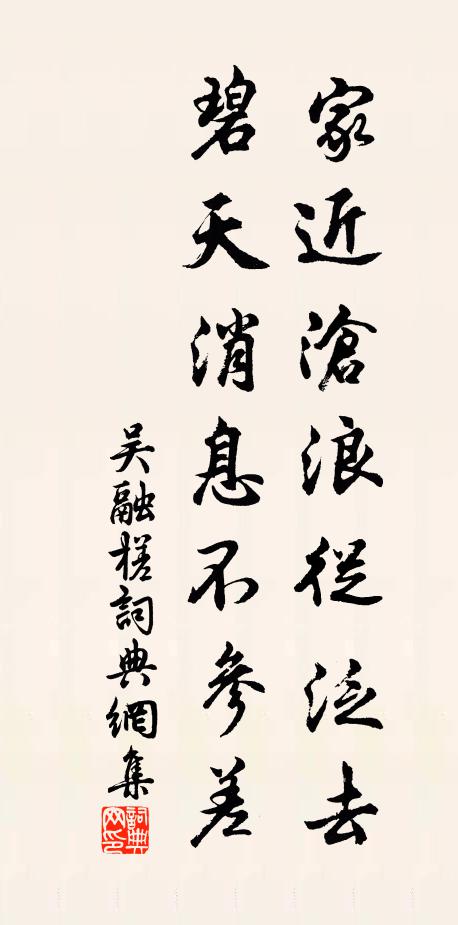 家近滄浪從泛去
碧天消息不參差
吴融槎詞典網集
詞典網印